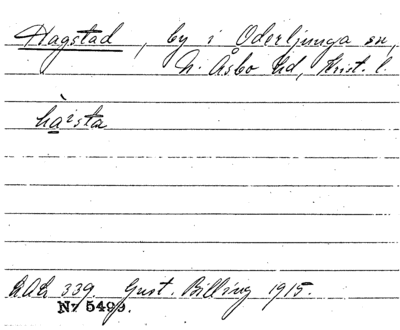 Hagstad, by i Oderljunga sn,
N. Åsbo hd, Krist. l.
hàista
LAL 339. Gust. Billing 1915.
Nr 5499.